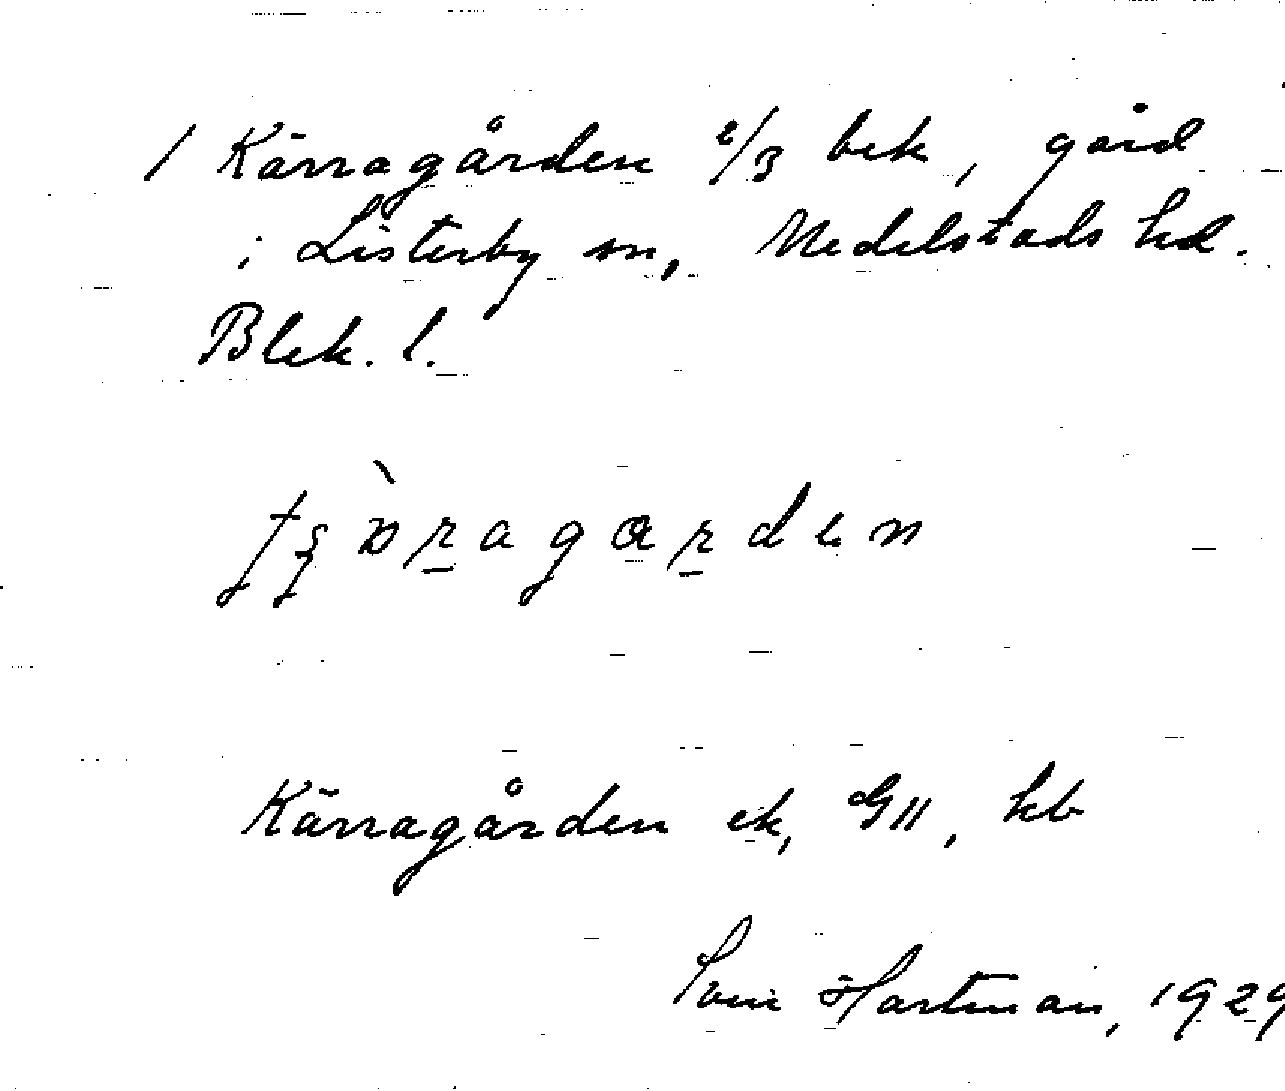 1 Kärragården 2/3 bek, gård
i Listerby sn, Medelstads hd.
Blek. l.
Kärragården ek, GII, hb
Sven Hartman, 1929